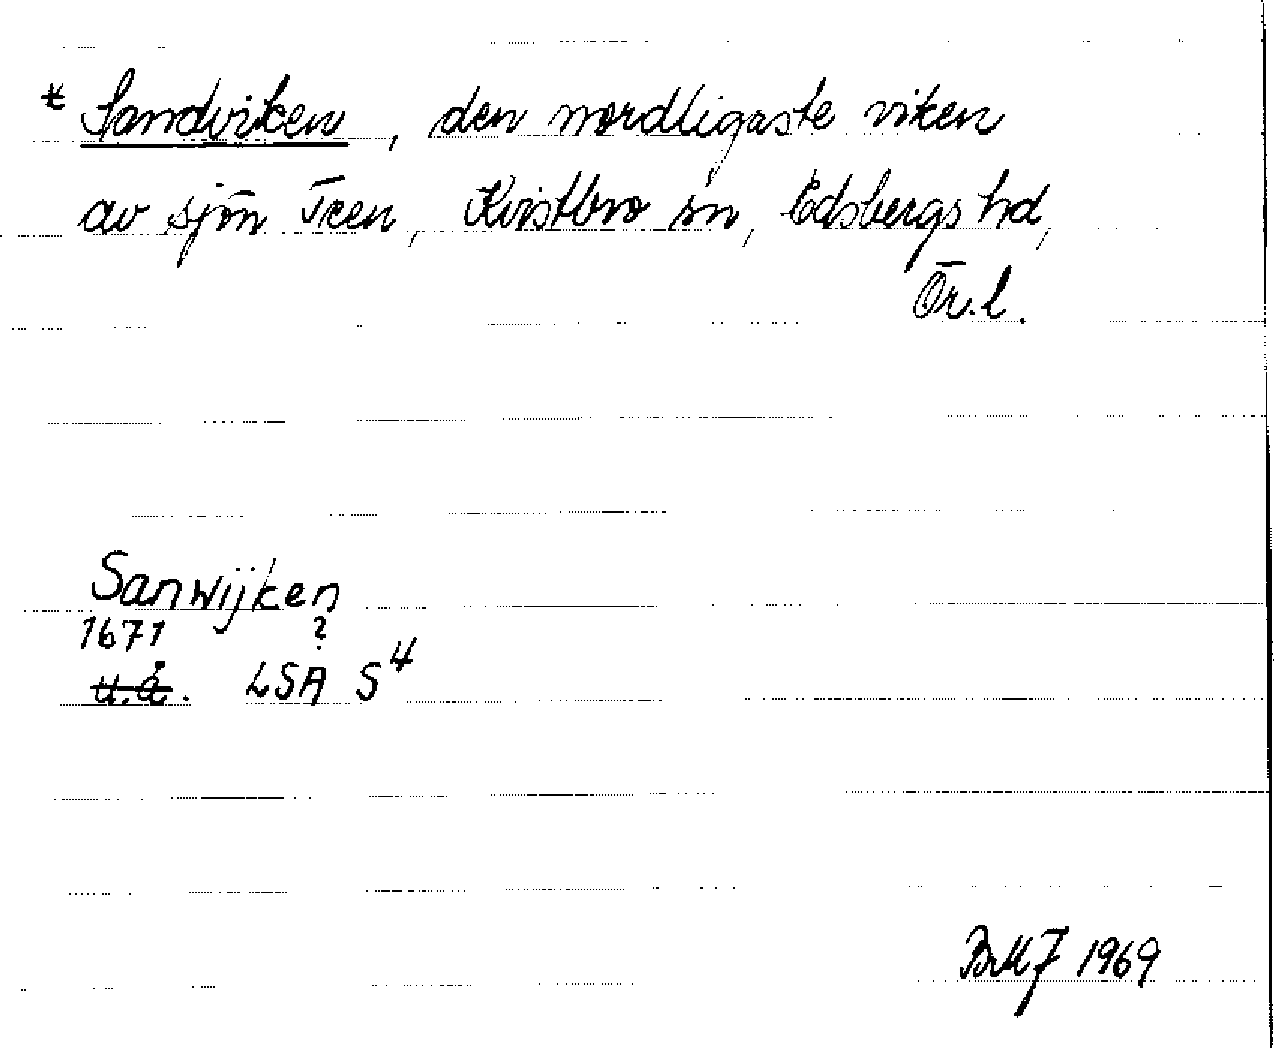 * Sandviken, den nordligaste viken
av sjön Teen, Kvistbro sn, Edsbergs hd,
Ör.l.
Sanwijken
1671 ?
u.å. LSA S4
1969